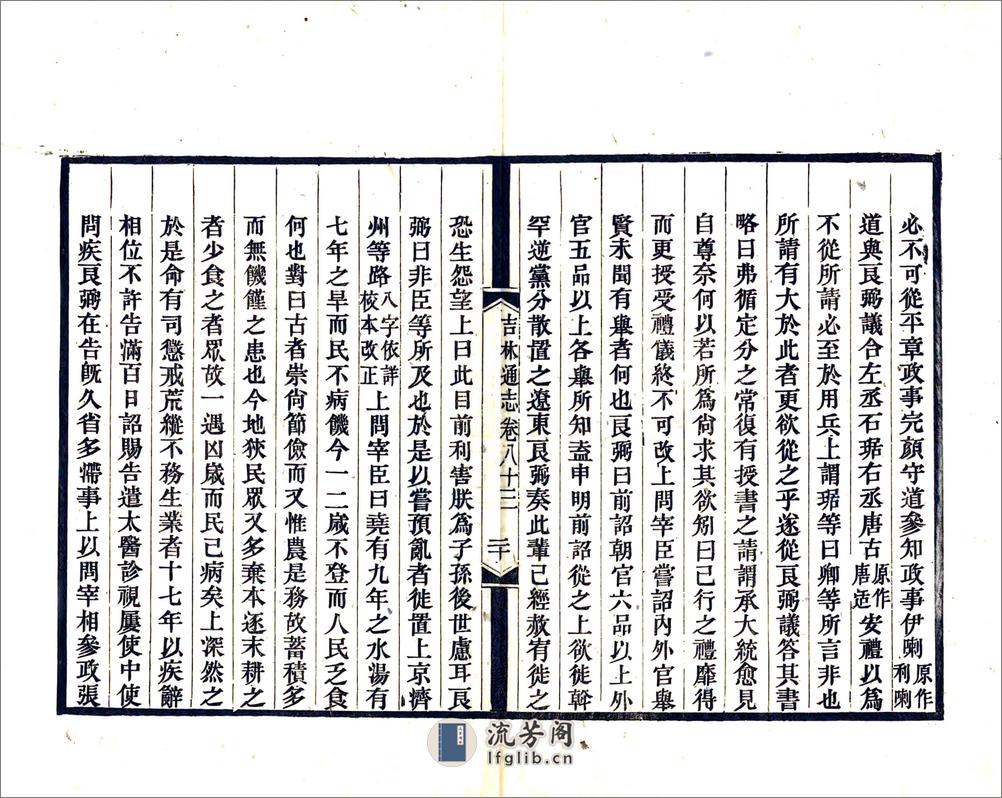 必不可從平章政事完顏守道參知政事伊喇原作利喇
道與良弼議合左丞石琚右丞唐古原作唐适安禮以爲
不從所請必至於用兵上謂琚等曰卿等所言非也
所請有大於此者更欲從之乎遂從良弼議答其書
略曰弗循定分之常復有授書之請謂承大統愈見
自尊奈何以若所爲尙求其欲矧曰已行之禮靡得
而更授受禮儀終不可改上問宰臣嘗詔內外官舉
賢未聞有舉者何也良弼曰前詔朝官六品以上外
官五品以上各舉所知盍申明前詔從之上欲徙斡
罕逆黨分散置之遼東良弼奏此輩已經赦宥徙之
吉林通志卷八十三
二十
恐生怨望上曰此目前利害朕爲子孫後世慮耳良
弼曰非臣等所及也於是以嘗預亂者徙置上京濟
州等路八字依詳校本改正上問宰臣曰堯有九年之水湯有
七年之旱而民不病饑今一二歲不登而人民乏食
何也對曰古者崇尙節儉而又惟農是務故蓄積多
而無饑饉之患也今地狹民眾又多棄本逐末耕之
者少食之者眾故一遇凶歲而民已病矣上深然之
於是命有司懲戒荒縱不務生業者十七年以疾辭
相位不許告滿百日詔賜告遣太醫診視屢使中使
問疾良弼在告旣久省多滯事上以問宰相參政張
流芳阁
lfglib.cn